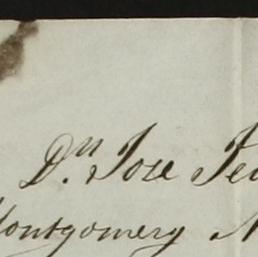 Dn. Jose
Montgomery